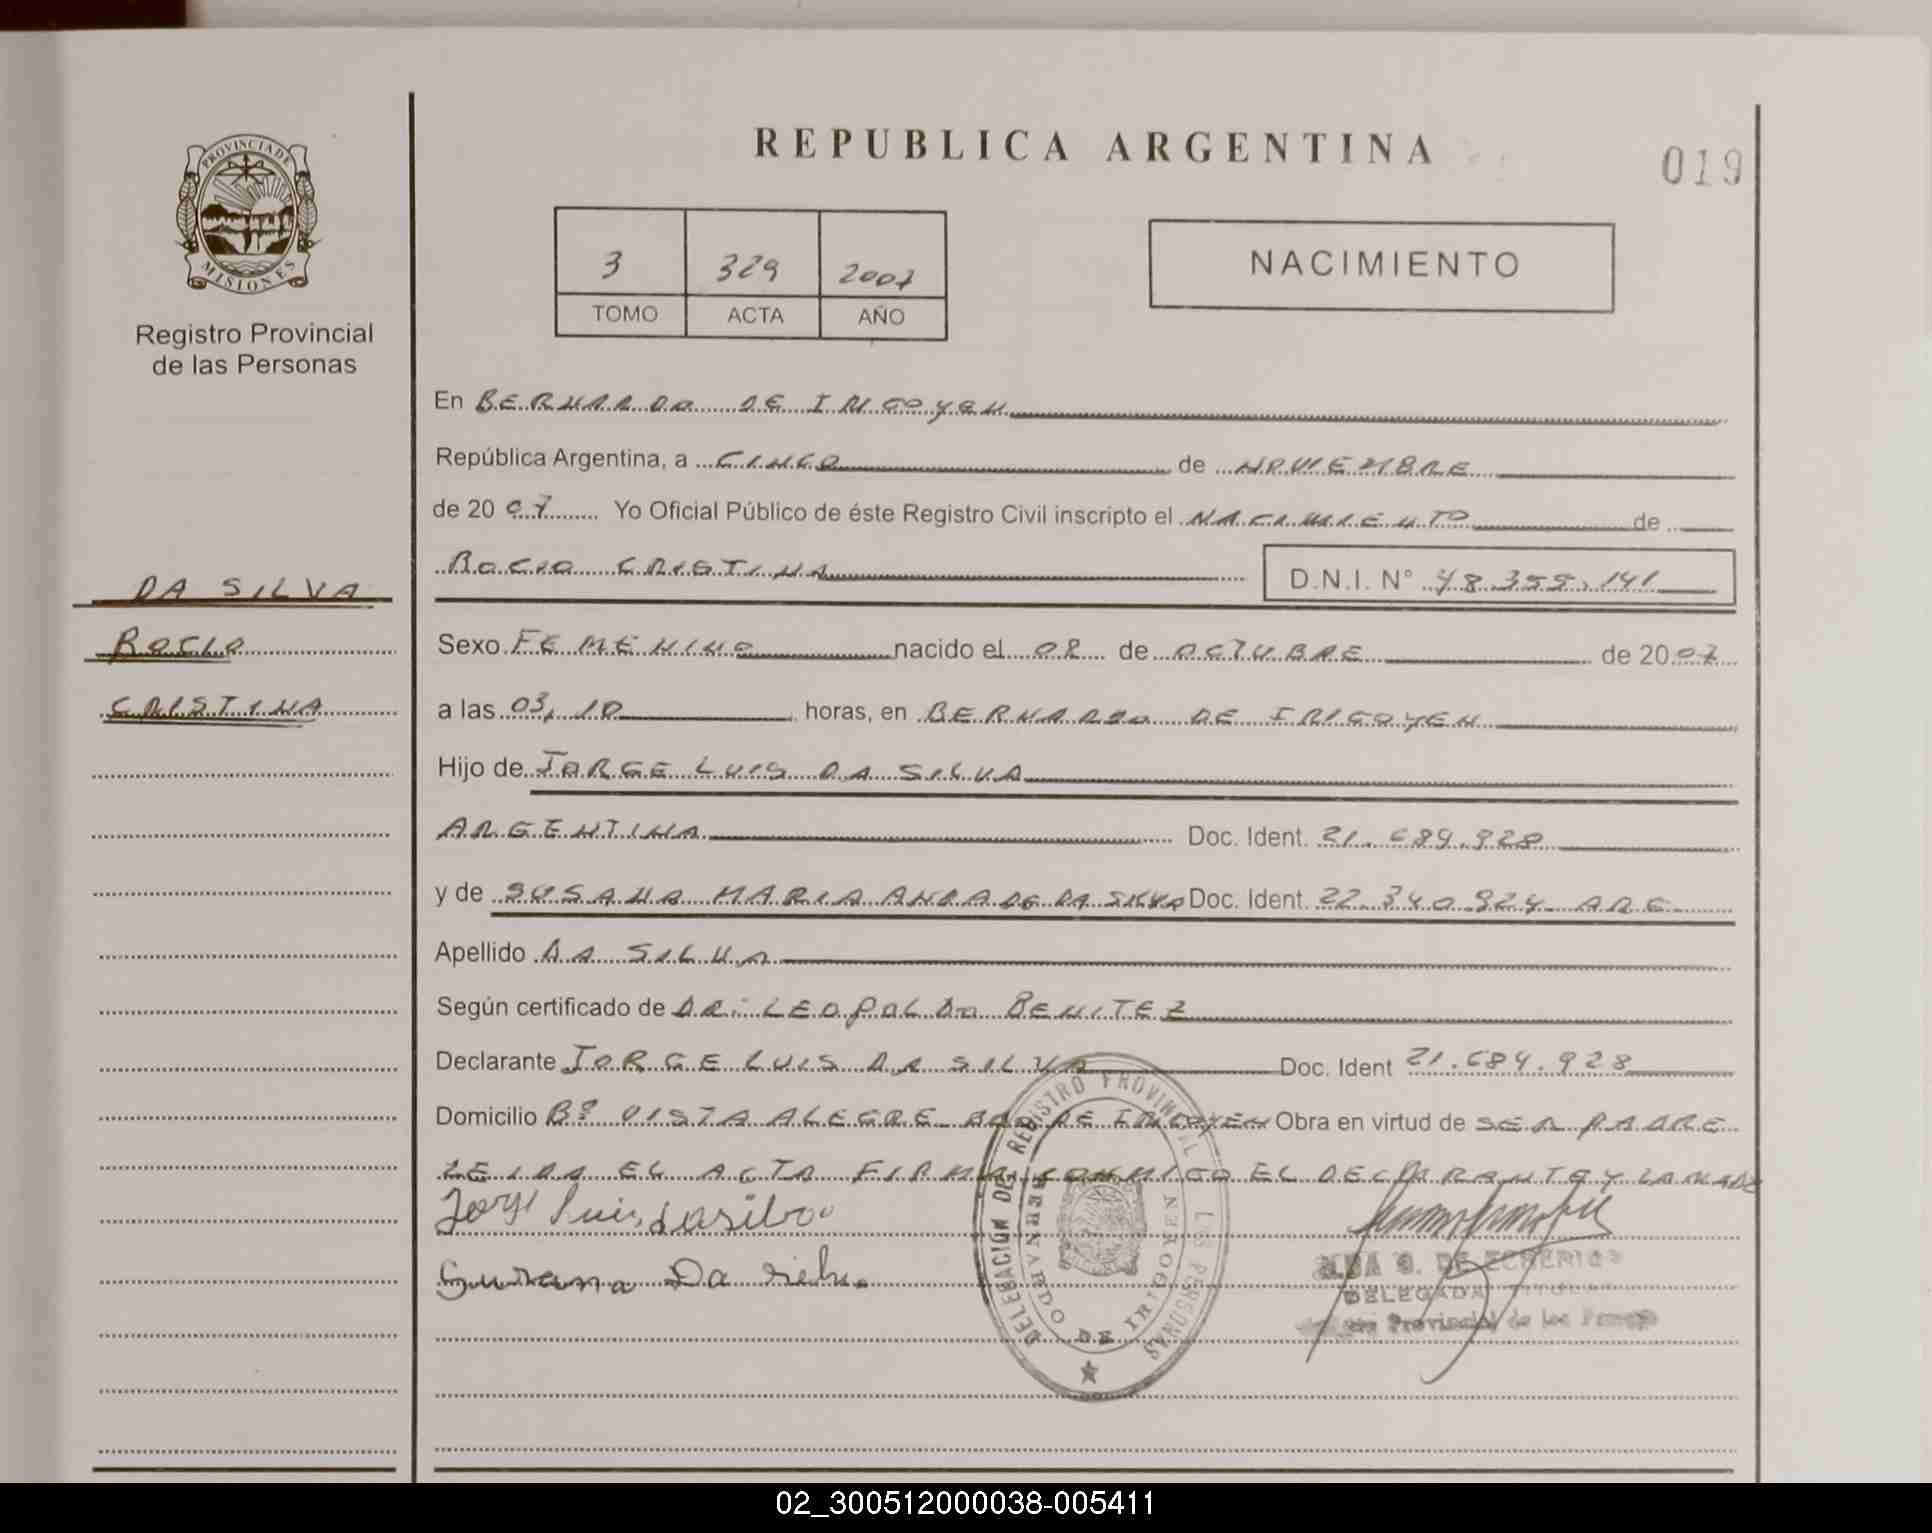 PROVINCIA DE
MISIONES
Registro Provincial
de las Personas
DA SILVA
ROCIO
CRISTINA
REPUBLICA ARGENTINA
019
3 329 2007
TOMO ACTA AÑO
NACIMIENTO
En BERNARDO DE IRIGOYEN
República Argentina, a CINCO de NOVIEMBRE
de 2007 Yo Oficial Público de éste Registro Civil inscripto el NACIMIENTO de
ROCIO CRISTINA D.N.I. N° 48.358.141
Sexo FEMENINO nacido el 08 de OCTUBRE de 2007
a las 03,10 horas, en BERNARDO DE IRIGOYEN
Hijo de JORGE LUIS DA SILVA
ARGENTINA Doc. Ident. 21.689.928
y de SUSANA MARIA ANDRADE DA SILVA Doc. Ident. 22.340.924 ARG.
Apellido DA SILVA
Según certificado de DR: LEOPOLDO BENITEZ
Declarante JORGE LUIS DA SILVA Doc. Ident 21.689.928
Domicilio Bº VISTA ALEGRE BDO DE IRIGOYEN Obra en virtud de SER PADRE
LEIDA EL ACTA FIRMA CONMIGO EL DECLARANTE Y LA MADRE
Jorge Luis dasilva
Susana Da silva
DELEGACIÓN DEL REGISTRO PROVINCIAL DE LAS PERSONAS
BERNARDO DE IRIGOYEN
DE ECHERIO
DELEGADA TITULAR
Provincial de las Personas
02_300512000038-005411